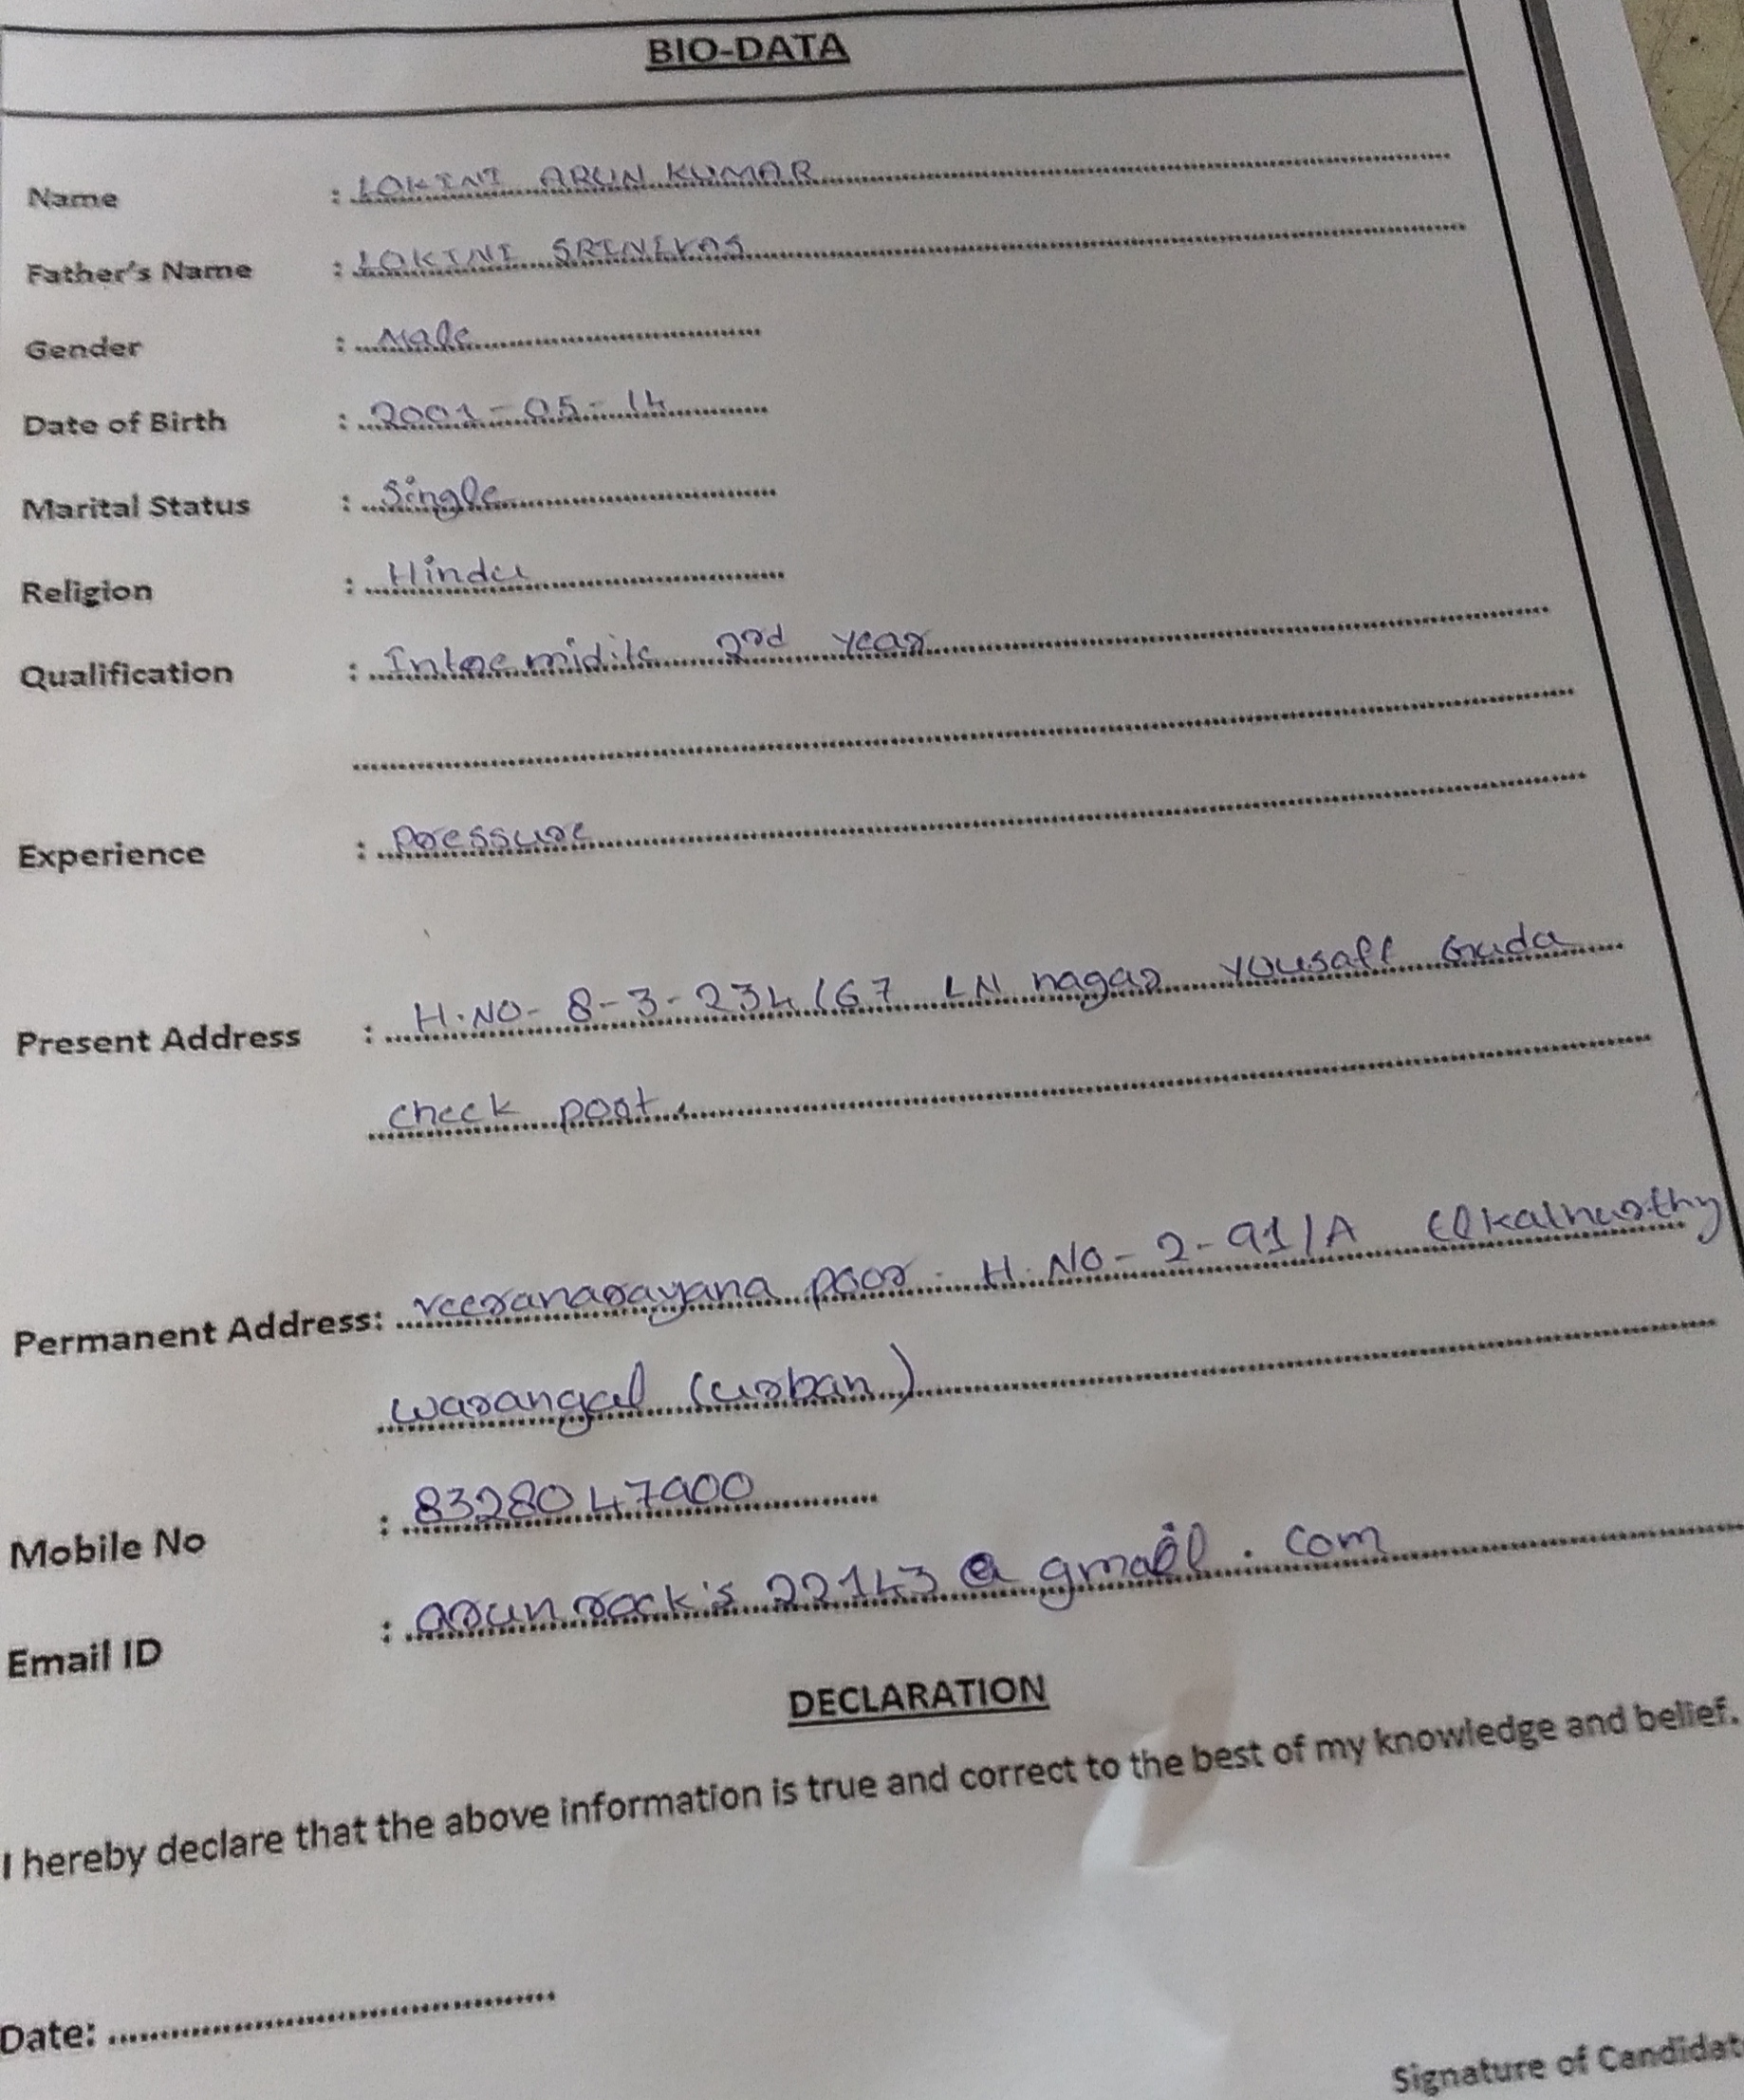 BIO-DATA
Name : LOKINI ARUN KUMAR
Father's Name : LOKINI SRINIVAS
Gender : Male
Date of Birth : 2001-05-14
Marital Status : Single
Religion : Hindu
Qualification : Intermidite 2nd year
Experience : Pressure
Present Address : H.NO- 8-3-234/67 LN nagar yousaff Guda
check post.
Permanent Address: veeranarayana poor. H.NO-2-91/A
warangal (urban)
Mobile No : 8328047900
Email ID : arunrock's 22143@gmail.com
DECLARATION
I hereby declare that the above information is true and correct to the best of my knowledge and belief.
Date:
Signature of Candidate